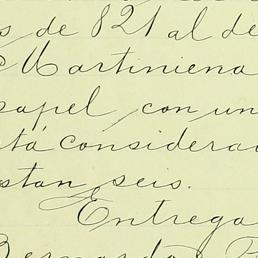 s de 821 al de
Martiniena
papel con un
tá considera
stan seis.
Entrega
Bernardo